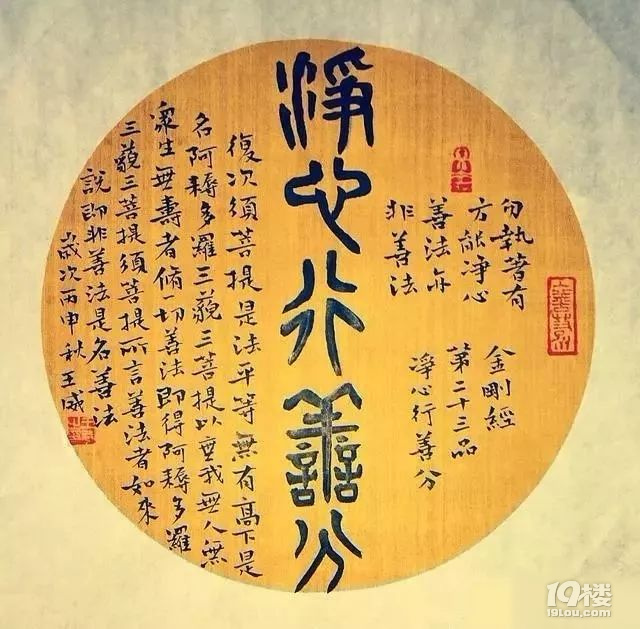 勿執著有
方能淨心
善法亦
非善法
金剛經
第二十三品
淨心行善分
淨心行善分
復次須菩提是法平等無有高下是
名阿耨多羅三藐三菩提以無我無人無
衆生無壽者脩一切善法即得阿耨多羅
三藐三菩提須菩提所言善法者如來
說即非善法是名善法
歲次丙申秋王威
19楼
19lou.com